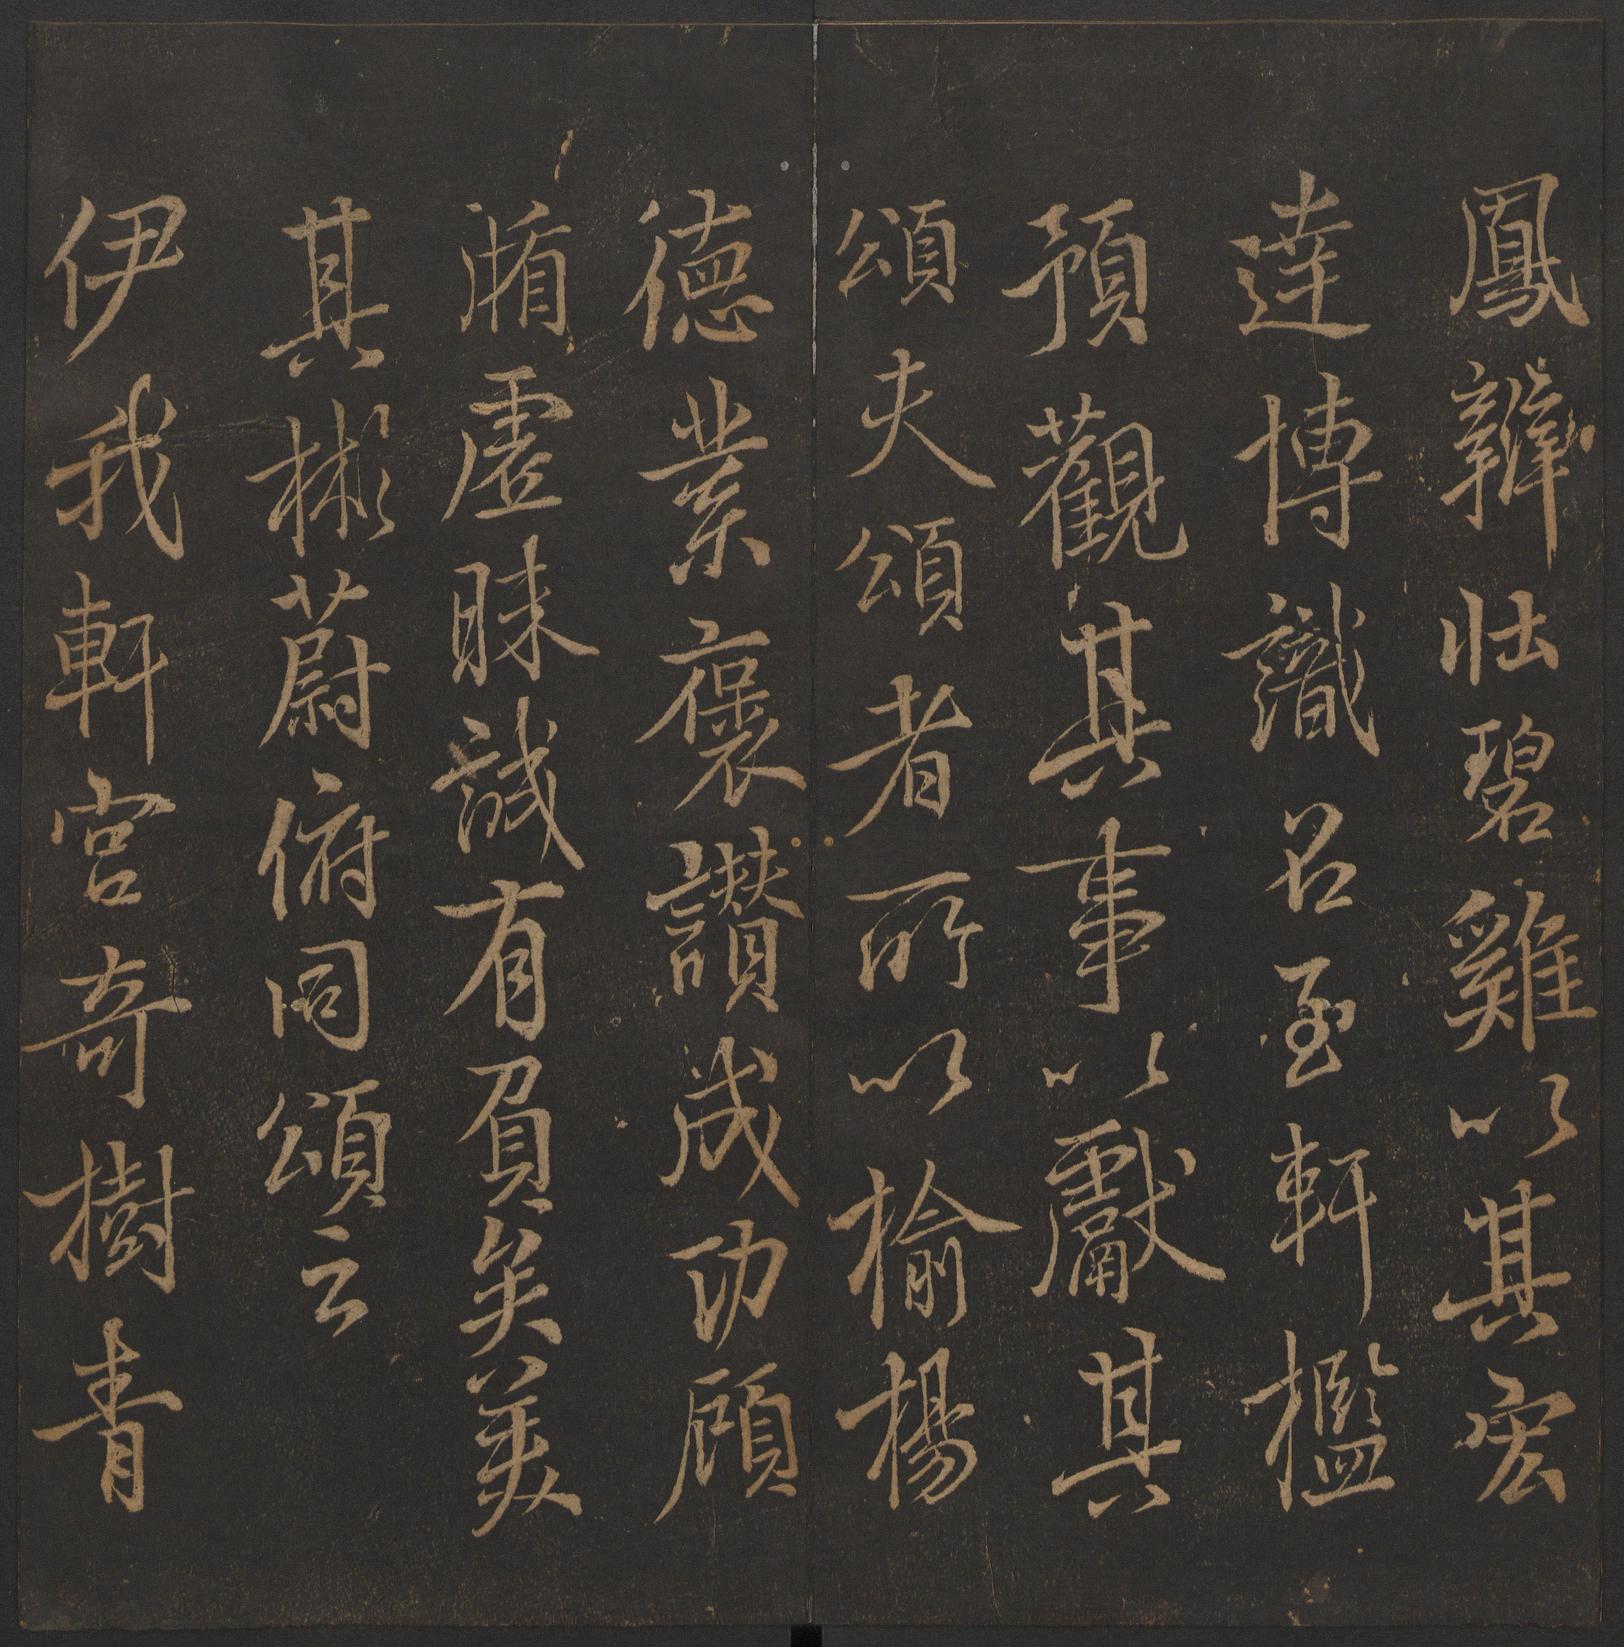 鳳辯壯碧雞以其宏
達博識召至軒檻
預觀其事以獻其
頌夫頌者所以揄揚
德業褒讚成功顧
循虛昧誠有負矣美
其彬蔚俯同頌云
伊我軒宮奇樹青